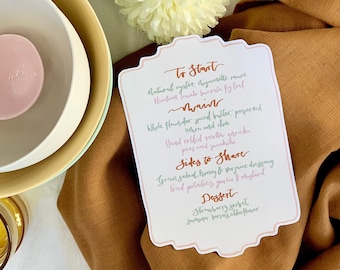 To Start
Natural oyster, mignonette sauce
Heirloom tomato burrata fig leaf
Main
Whole flounder, spiced butter, preserved
lemon and dill
Hand rolled risotto, gnocchi,
peas and zucchini
Sides to Share
Green salad, honey & verjuice dressing
Fried potatoes, garlic &
Dessert
Strawberry sorbet,
summer berries, elderflower